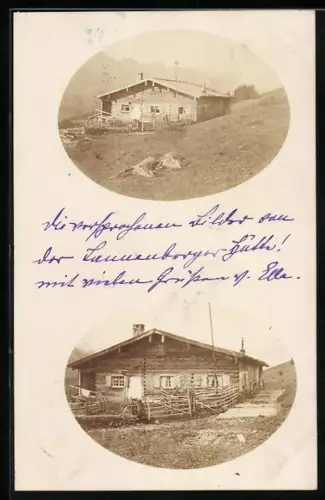 die versprochenen Bilder von
der Tannenberger-Hütte!
mit vielen Grüßen v. Elle.